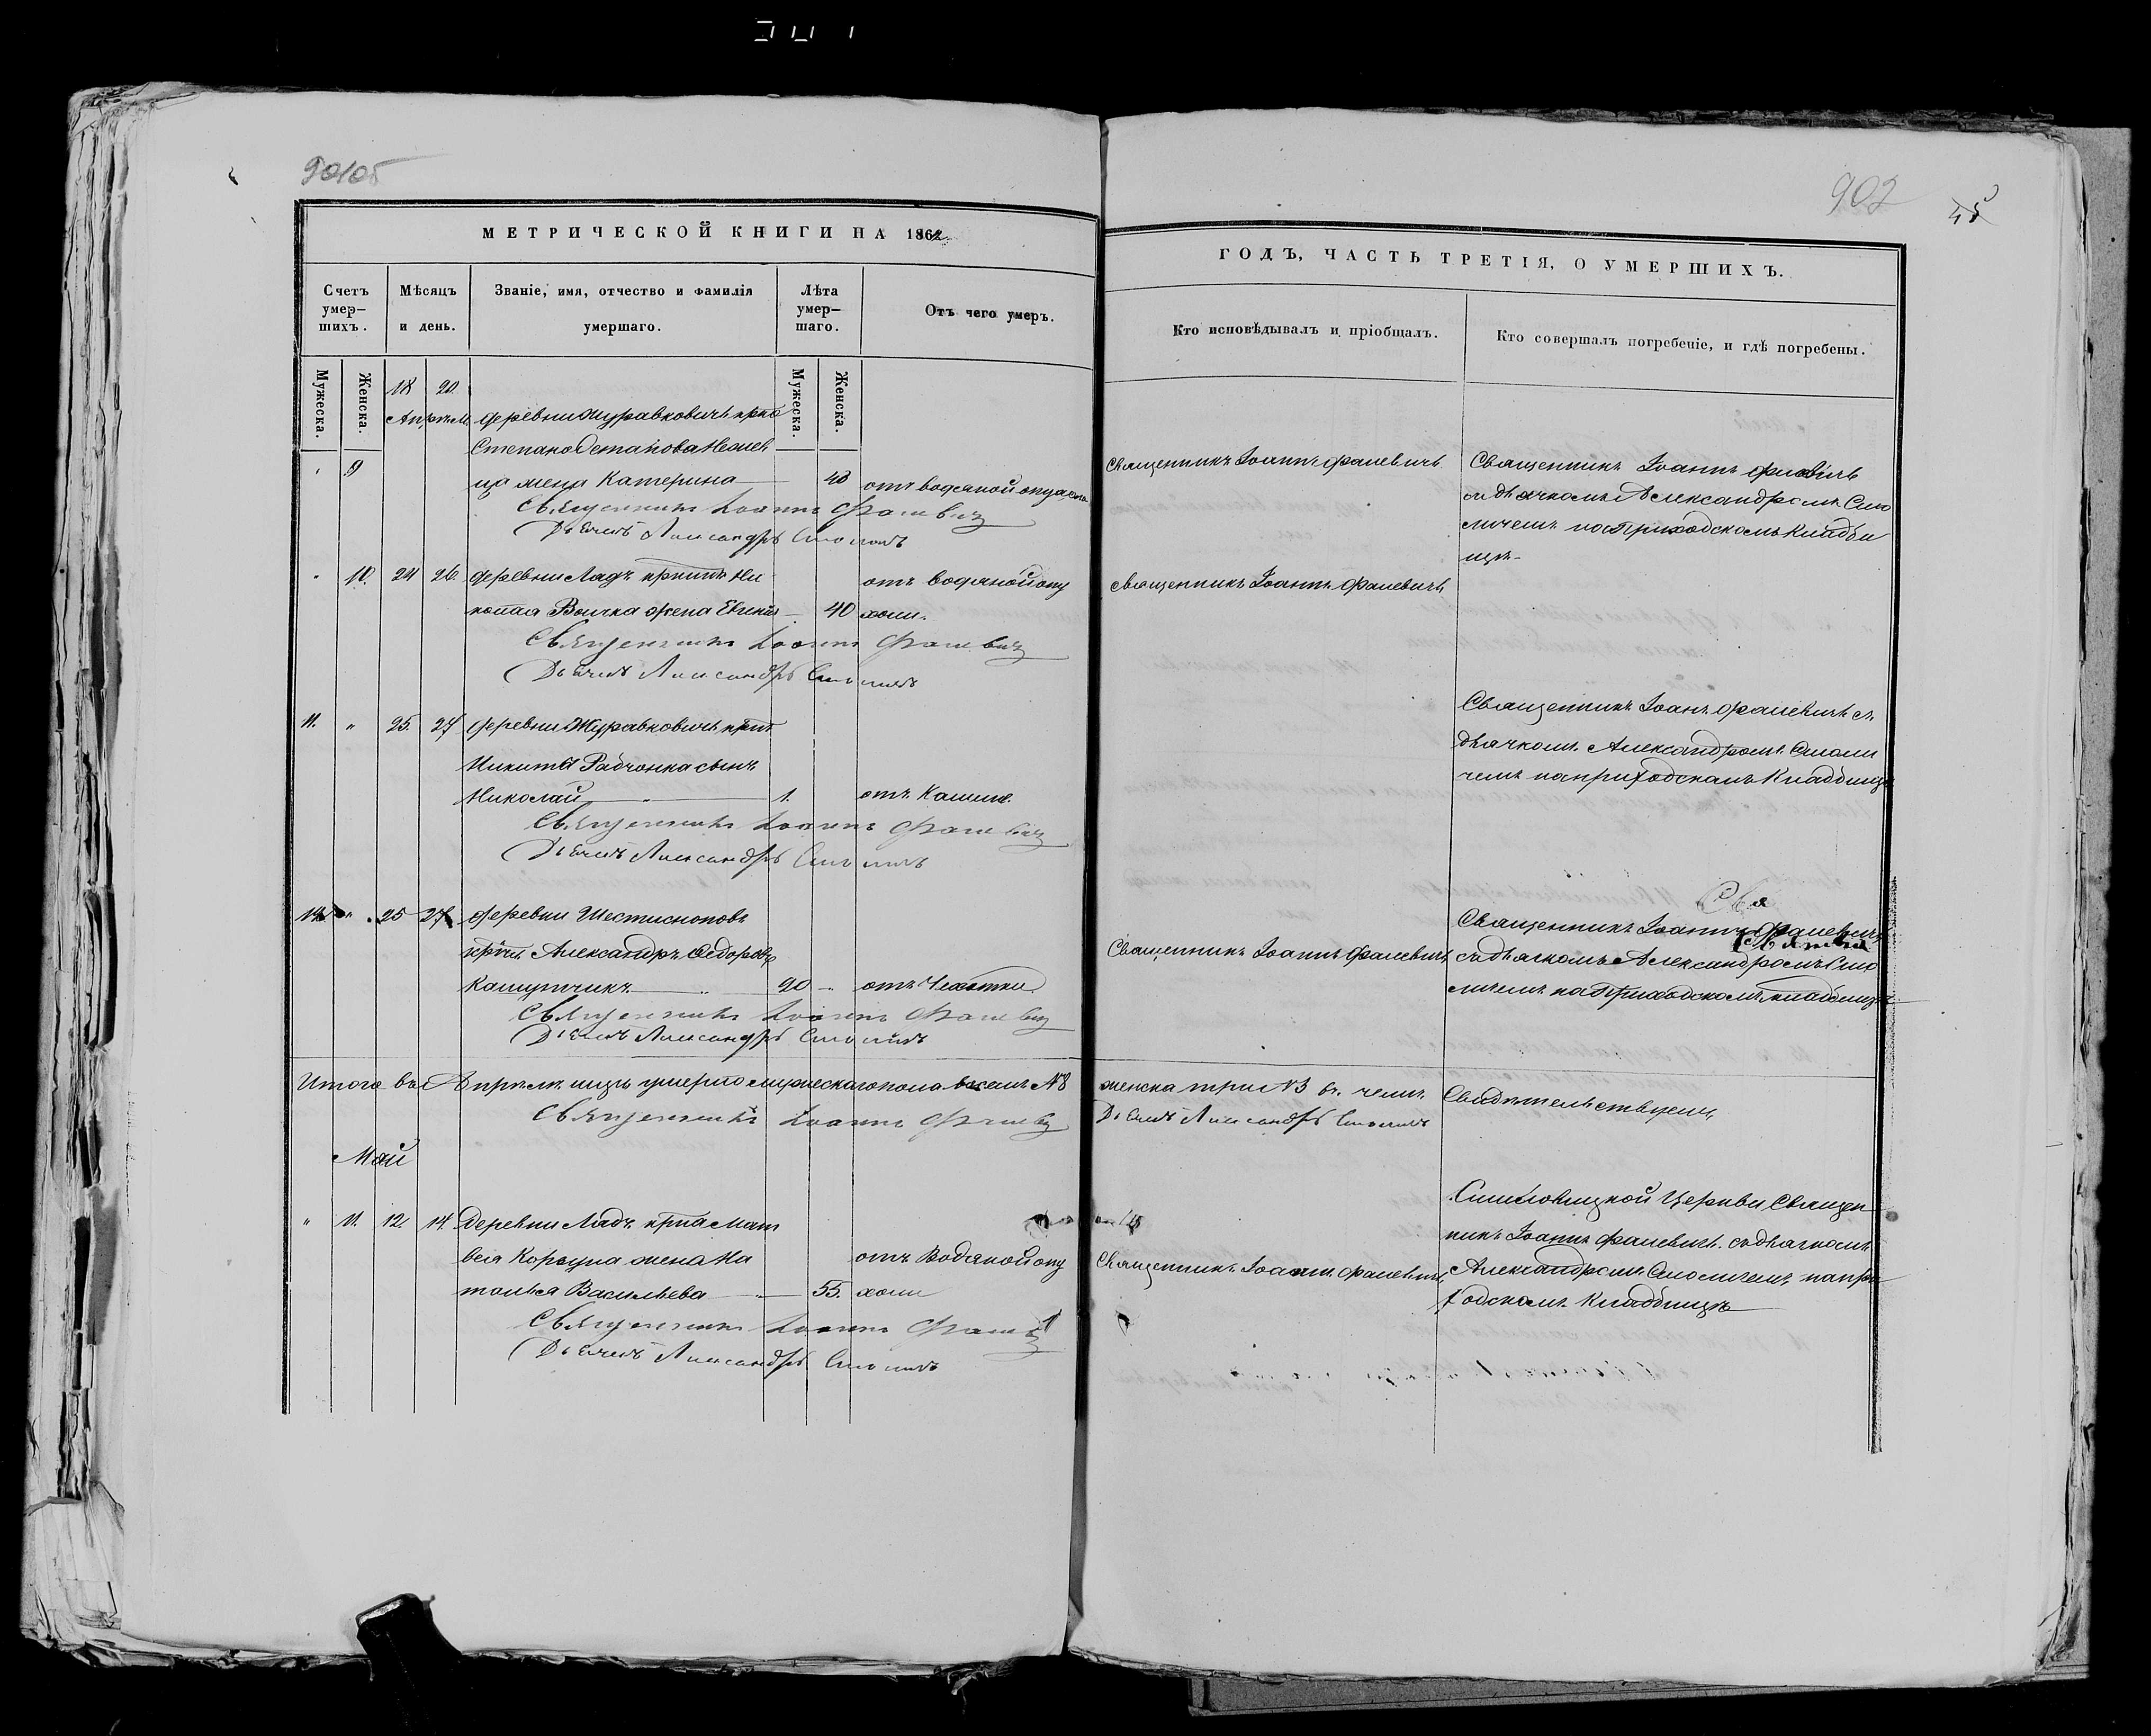 90105
902
45
МЕТРИЧЕСКОЙ КНИГИ НА 1862
ГОДЪ, ЧАСТЬ ТРЕТІЯ, О УМЕРШИХЪ.
Счетъ умер-
шихъ.
Мѣсяцъ
и день.
Званіе, имя, отчество и фамилія
умершаго.
Лѣта
умер-
шаго.
Отъ чего умеръ.
Кто исповѣдывалъ и пріобщалъ.
Кто совершалъ погребеніе, и гдѣ погребены.
Мужеска.
Женска.
Мужеска.
Женска.
18 20
Апрѣль деревни Журавковичъ
Степана
9 жена Катерина 40 отъ водяной
Священникъ Іоаннъ Фалевичъ
Священникъ Іоаннъ Фалевичъ
съ дьячкомъ Александромъ Смо
личемъ на Приходскомъ Кладби
щѣ
Священникъ Іоаннъ Фалевичъ
Дьячекъ Александръ Смоличъ
10. 24 26. деревни Лядъ Ни
колая жена 40
отъ водяной опу
холи.
священникъ Іоаннъ Фалевичъ
Священникъ Іоаннъ Фалевичъ
Дьячекъ Александръ Смоличъ
11. " 25. 27 деревни Журавковичъ
Никиты Рабчонка сынъ
Николай 1. отъ Кашля.
Священникъ Іоанъ Фалевичъ съ
дьячкомъ Александромъ Смоли
чемъ на приходскомъ Кладбищѣ
Священникъ Іоаннъ Фалевичъ
Дьячекъ Александръ Смоличъ
" 25 27 деревни Шестисноповъ
Александръ Федоровъ
20 отъ Чахотки.
Священникъ Іоаннъ Фалевичъ
Свя
Священникъ Іоаннъ Фалевичъ
съ дьячкомъ Александромъ Смо
личемъ на Приходскомъ кладбищѣ
Священникъ Іоаннъ Фалевичъ
Дьячекъ Александръ Смоличъ
Итого въ Апрѣлѣ мцѣ умерло мужескаго пола восемь №8 женска три №3 въ чемъ Свидѣтельствуемъ
Священникъ Іоаннъ Фалевичъ Дьячекъ Александръ Смоличъ
Май
" 11. 12. 14. Деревни Лядъ Мат
вея жена На
талья Васильева 55.
отъ Водяной опу
холи
Священникъ Іоаннъ Фалевичъ
Церкви Священ
никъ Іоаннъ Фалевичъ съ дьячкомъ
Александромъ Смоличемъ на при
ходскомъ Кладбищѣ
Священникъ Іоаннъ Фалевичъ
Дьячекъ Александръ Смоличъ